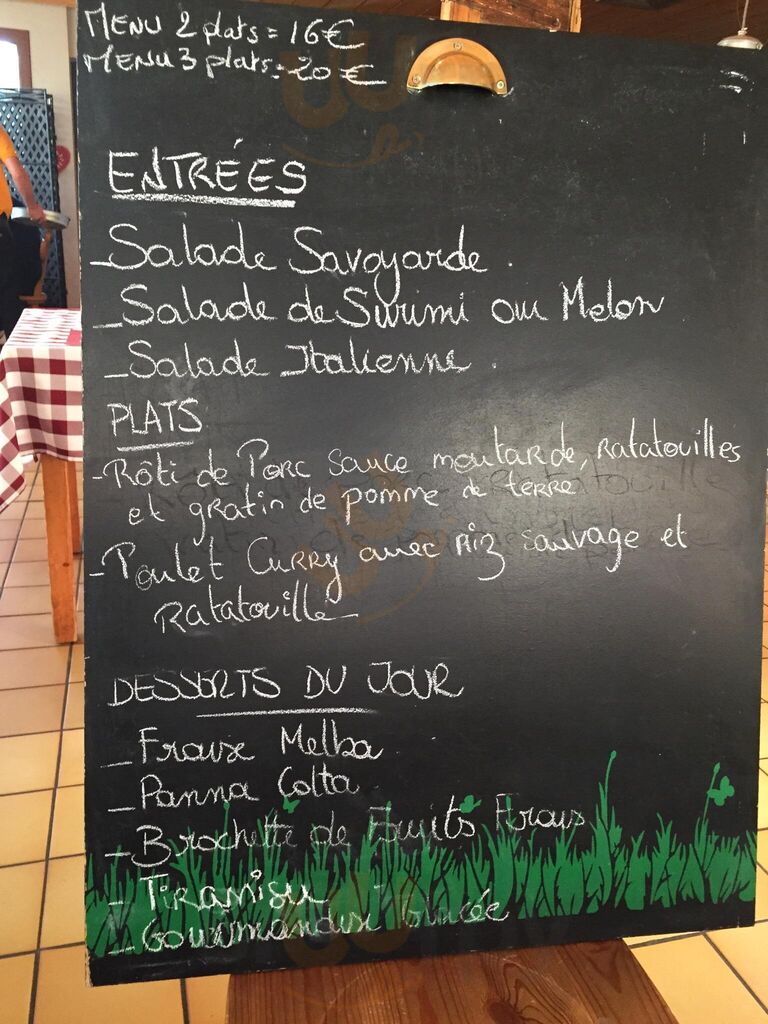 MENU 2 plats = 16€
MENU 3 plats = 20€
ENTRÉES
- Salade Savoyarde.
- Salade de Surimi ou Melon
- Salade Italienne.
PLATS
- Rôti de Porc sauce moutarde, ratatouilles
et gratin de pomme de terre
- Poulet Curry avec riz sauvage et
Ratatouille
DESSERTS DU JOUR
- Fraise Melba
- Panna Cotta
- Brochette de Fruits Frais
- Tiramisu
- Gourmandise Glacée